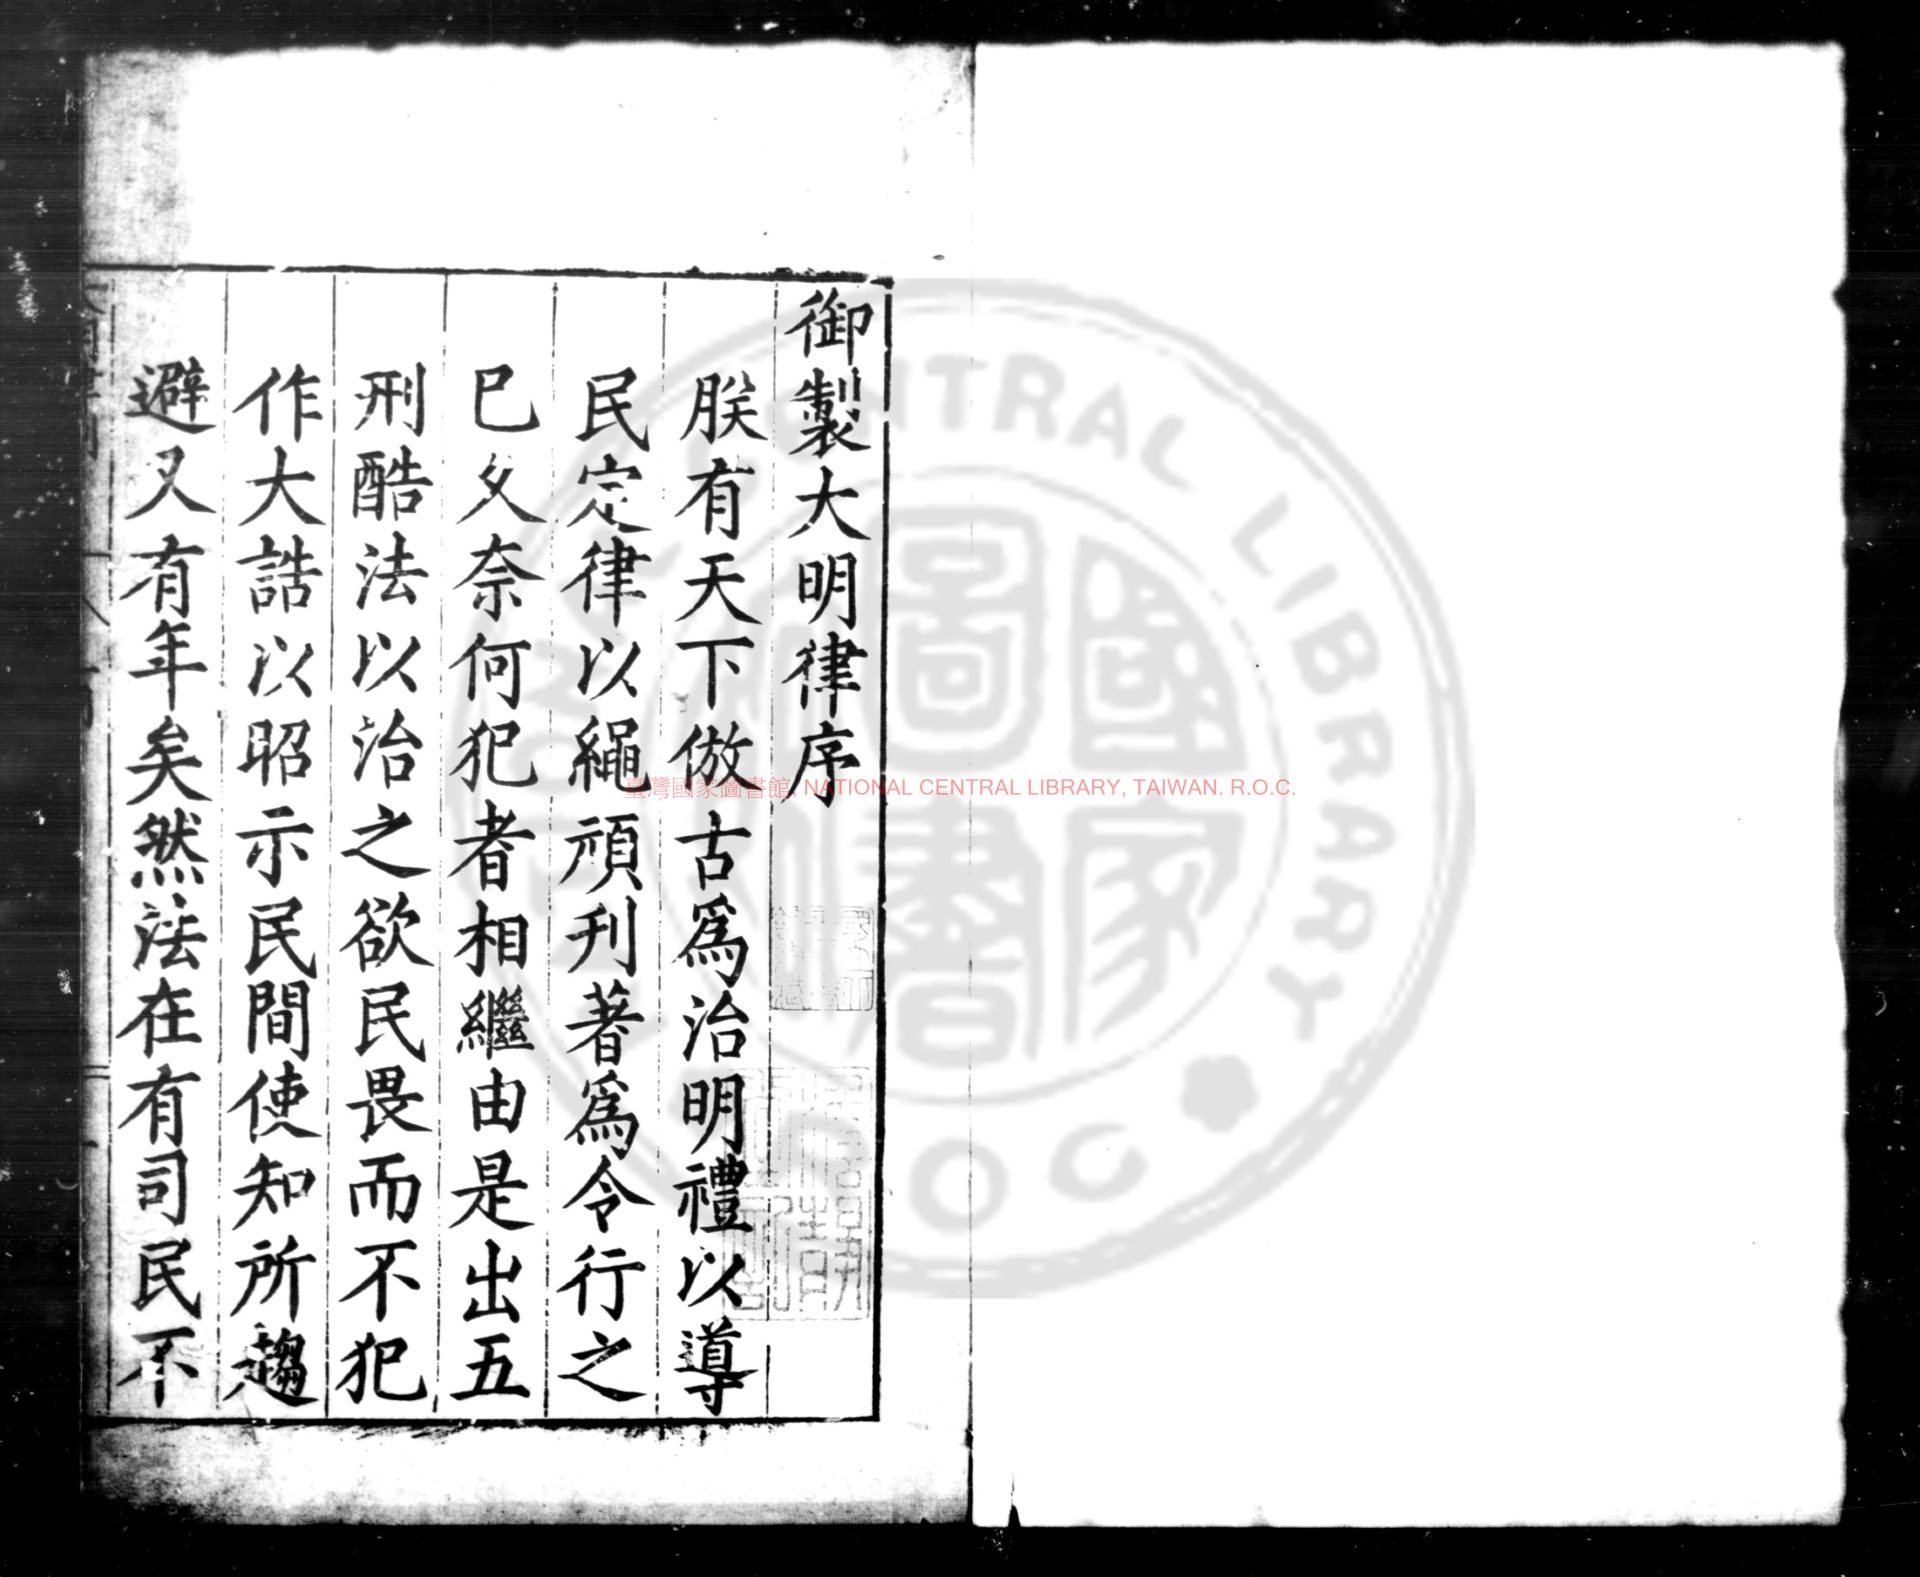 御製大明律序
朕有天下倣古爲治明禮以導
民定律以繩頑刋著爲令行之
巳久奈何犯者相繼由是出五
刑酷法以治之欲民畏而不犯
作大誥以昭示民間使知所趨
避又有年矣然法在有司民不
臺灣國家圖書館, NATIONAL CENTRAL LIBRARY, TAIWAN. R.O.C.
CENTRAL LIBRARY
國家圖書